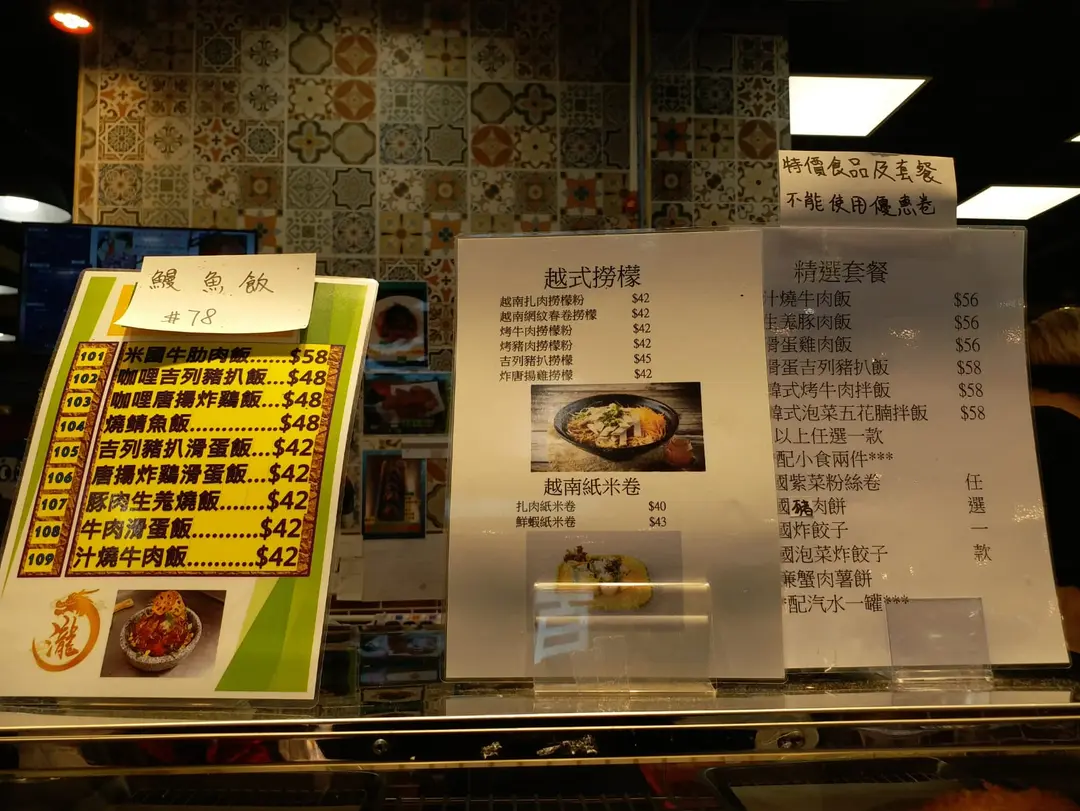 鰻魚飯
#78
101 米國牛肋肉飯......$58
102 咖哩吉列豬扒飯...$48
103 咖哩唐揚炸鷄飯...$48
104 燒鯖魚飯..............$48
105 吉列豬扒滑蛋飯...$42
106 唐揚炸鷄滑蛋飯...$42
107 豚肉生羌燒飯.......$42
108 牛肉滑蛋飯...........$42
109 汁燒牛肉飯...........$42
瀧
越式撈檬
越南扎肉撈檬粉 $42
越南網紋春卷撈檬 $42
烤牛肉撈檬粉 $42
烤豬肉撈檬粉 $42
吉列豬扒撈檬 $45
炸唐揚雞撈檬 $42
越南紙米卷
扎肉紙米卷 $40
鮮蝦紙米卷 $43
特價食品及套餐
不能使用優惠卷
精選套餐
汁燒牛肉飯 $56
生羌豚肉飯 $56
滑蛋雞肉飯 $56
滑蛋吉列豬扒飯 $58
韓式烤牛肉拌飯 $58
韓式泡菜五花腩拌飯 $58
以上任選一款
配小食兩件***
國紫菜粉絲卷
國豬肉餅
國炸餃子
國泡菜炸餃子
蟹肉薯餅
任選一款
配汽水一罐***